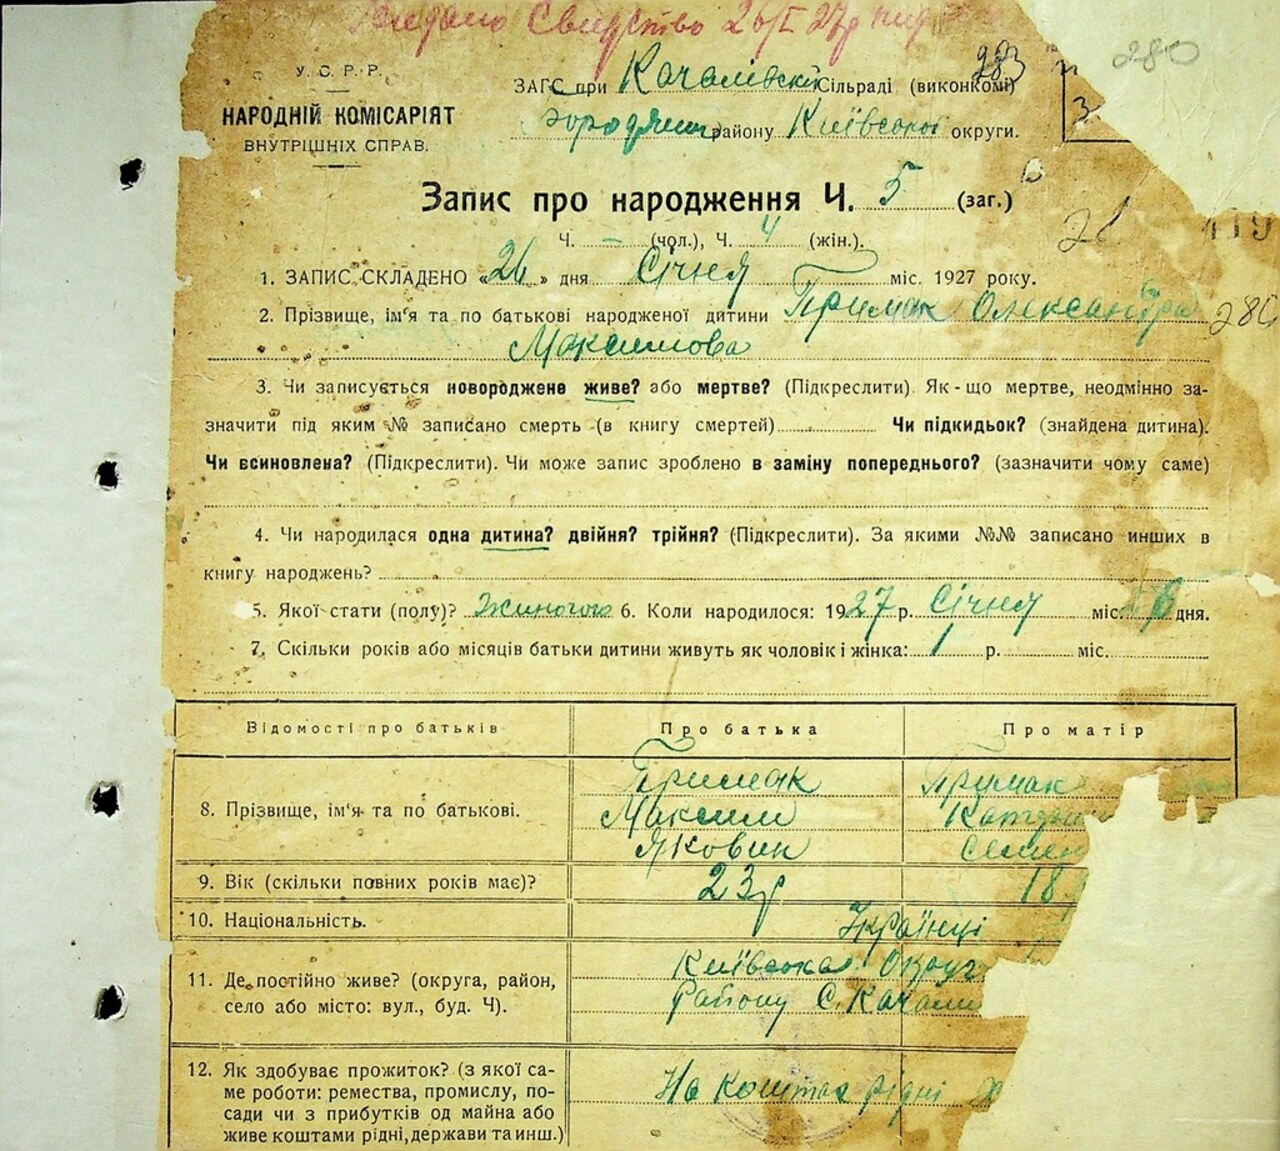 Видано Свидоство 26/I 27р
280
283
У. С. Р. Р.
НАРОДНІЙ КОМІСАРІЯТ
ВНУТРІШНІХ СПРАВ.
ЗАГС при Качалівській Сільраді (виконкомі)
району Київської округи.
З
Запис про народження Ч. 5 (заг.)
Ч. – (чол.), Ч. 4 (жін.).
119
1. ЗАПИС СКЛАДЕНО «26» дня Січня міс. 1927 року.
2. Прізвище, ім'я та по батькові народженої дитини Примак Олександра
Максимова
280
3. Чи записується новороджене живе? або мертве? (Підкреслити). Як-що мертве, неодмінно за-
значити під яким № записано смерть (в книгу смертей) Чи підкидьок? (знайдена дитина).
Чи всиновлена? (Підкреслити). Чи може запис зроблено в заміну попереднього? (зазначити чому саме)
4. Чи народилася одна дитина? двійня? трійня? (Підкреслити). За якими №№ записано инших в
книгу народжень?
5. Якої стати (полу)? Жиночого 6. Коли народилося: 1927 р. Січня міс. дня.
7. Скільки років або місяців батьки дитини живуть як чоловік і жінка: 1 р. міс.
Відомості про батьків Про батька Про матір
8. Прізвище, ім'я та по батькові.
Примак Примак
Максим
Якович Семен
9. Вік (скільки повних років має)? 23р 18
10. Національність. Українці
11. Де постійно живе? (округа, район,
село або місто: вул., буд. Ч).
Київської Округ
Району С. Качали
12. Як здобуває прожиток? (з якої са-
ме роботи: ремества, промислу, по-
сади чи з прибутків од майна або
живе коштами рідні, держави та инш.)
На коштах рідні